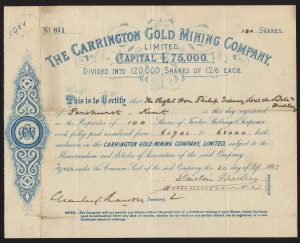 1904
No 811
100 SHARES.
THE CARRINGTON GOLD MINING COMPANY,
LIMITED.
CAPITAL £75,000.
DIVIDED INTO 120,000 SHARES OF 12/6 EACH.
This is to Certify that The Right Hon Philip Sidney Lord de L'Isle & Dudley
of Penshurst, Kent is this day registered
as the Proprietor of 100 Shares of Twelve Shillings & Sixpence
each fully paid numbered from 61901 to 62000 both
inclusive on the CARRINGTON GOLD MINING COMPANY, LIMITED, subject to the
Memorandum and Articles of Association of the said Company.
Given under the Common Seal of the said Company this 20 day of
Secretary.
NOTE.—The Company will not transfer any Shares without the production of a Certificate relating to such Shares, which Certificate
must be surrendered before any deed of transfer, whether for the whole or any portion thereof can be registered, or a new